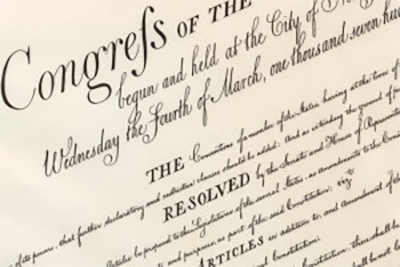 Congreſs OF THE
begun and held at the City of
Wednesday the Fourth of March, one thousand seven hun
THE Conventions of a number of the States, having at the time of
its powers, that further declaratory and restrictive clauses should be added: And as extending the ground of
RESOLVED by the Senate and House of Representat
Articles be proposed to the Legislatures of the several States, as amendments to the Const
and purposes, as part of the said Constitution; viz.
ARTICLES in addition to, and Amendment of
Constitution.